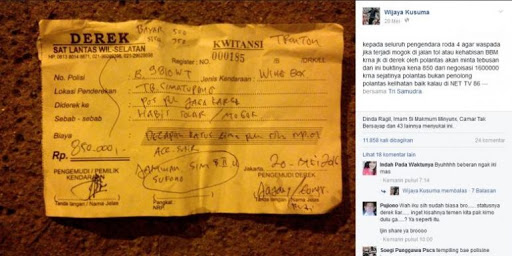 DEREK
SAT LANTAS WIL-SELATAN
KWITANSI
REGISTER NO: 000185
No. Polisi
Jenis Kendaraan:
WING BOX
Lokasi Penderekan
TB. SIMATUPANG
Diderek ke
Sebab - sebab
HABIS SOLAR / MOGOK
Biaya
Rp. 850.000,-
PENGEMUDI / PEMILIK
KENDARAAN
Jakarta,
PENGEMUDI DEREK
Tanda tangan / Nama Jelas
Pangkat
NRP
Tanda tangan / Nama Jelas
Wijaya Kusuma
kepada seluruh pengendara roda 4 agar waspada
jika terjadi mogok di jalan tol atau kehabisan BBM
krna jk di derek oleh polantas akan minta tebusan
dan ini buktinya kena 850 dari negosiasi 1600000
krna sejatinya polantas bukan penolong
polantas kelihatan baik kalau di NET TV 86 —
bersama Tri Samudra.
Dinda Ragil, Imam Si Makmum Meiyumi, Camar Tak
Bersayap dan 43 lainnya menyukai ini.
11.858 kali dibagikan
24 komentar
Lihat 18 komentar lain
Indah Pada Waktunya Byuhhhh beberan ngak ini
mas
Kemarin pukul 7:14
Wijaya Kusuma membalas · 7 Balasan
Pujiono Wah iku sih sudah biasa bro..... statusnya
derek liar...., inget kisahnya temen kita pak kirno
dulu ga....? Ya seperti itu.
Ijin share ya broooo
Kemarin pukul 10:00
Soegi Punggawa Pacs templing bae polisine